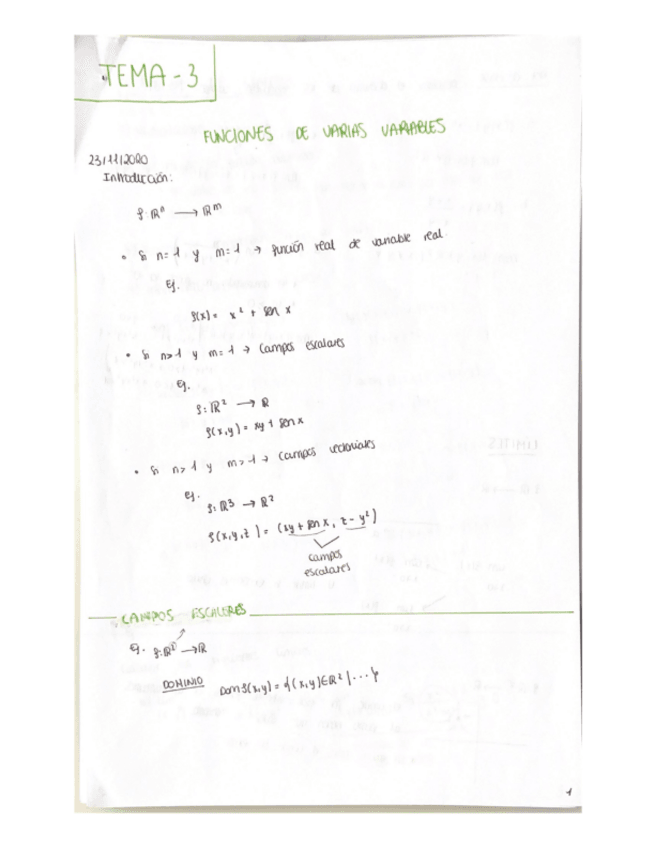 TEMA - 3
FUNCIONES DE VARIAS VARIABLES
23/11/2020
Introducción:
f: ℝⁿ → ℝᵐ
• Si n=1 y m=1 → función real de variable real
Ej.
f(x)= x² + sen x
• Si n>1 y m=1 → Campos escalares
ej.
f: ℝ² → ℝ
f(x,y) = xy + sen x
• Si n>1 y m>1 → Campos vectoriales
ej.
f: ℝ³ → ℝ²
f(x,y,z) = (xy + sen x, z - y²)
campos
escalares
CAMPOS ESCALERES
Ej. f: ℝ² → ℝ
DOMINIO Dom f(x,y) = {(x,y)∈ℝ² | ... }
1